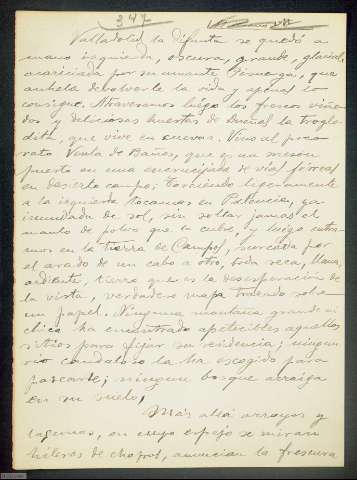 347
Valladolid la difunta se quedó a
mano izquierda, oscura, grande, glacial,
acariciada por su amante Pisuerga, que
anhela devolverle la vida y apenas lo
consigue. Atravesamos luego los frescos viñe-
dos y deliciosas huertas de Dueñas la troglo-
dita, que vive en cuevas. Vimos al paso
Venta de Baños, que es un mesón
puesto en una encrucijada de vías férreas
en desierto campo; torciendo ligeramente
a la izquierda tocamos en Palencia, ya
inundada de sol, sin soltar jamás el
manto de polvo que la cubre, y luego entra-
mos en la Tierra de Campos, surcada por
el arado de un cabo a otro, toda seca, llana,
ardiente, tierra que es la desesperación de
la vista, verdadero mapa trazado sobre
un papel. Ninguna montaña grande ni
chica ha encontrado apetecibles aquellos
sitios para fijar su residencia; ningun
río caudaloso la ha escogido para
pasearse; ningun bosque arraiga
en su suelo,
Más allá arroyos y
lagunas, en cuyo espejo se miran
hileras de chopos, anuncian la frescura